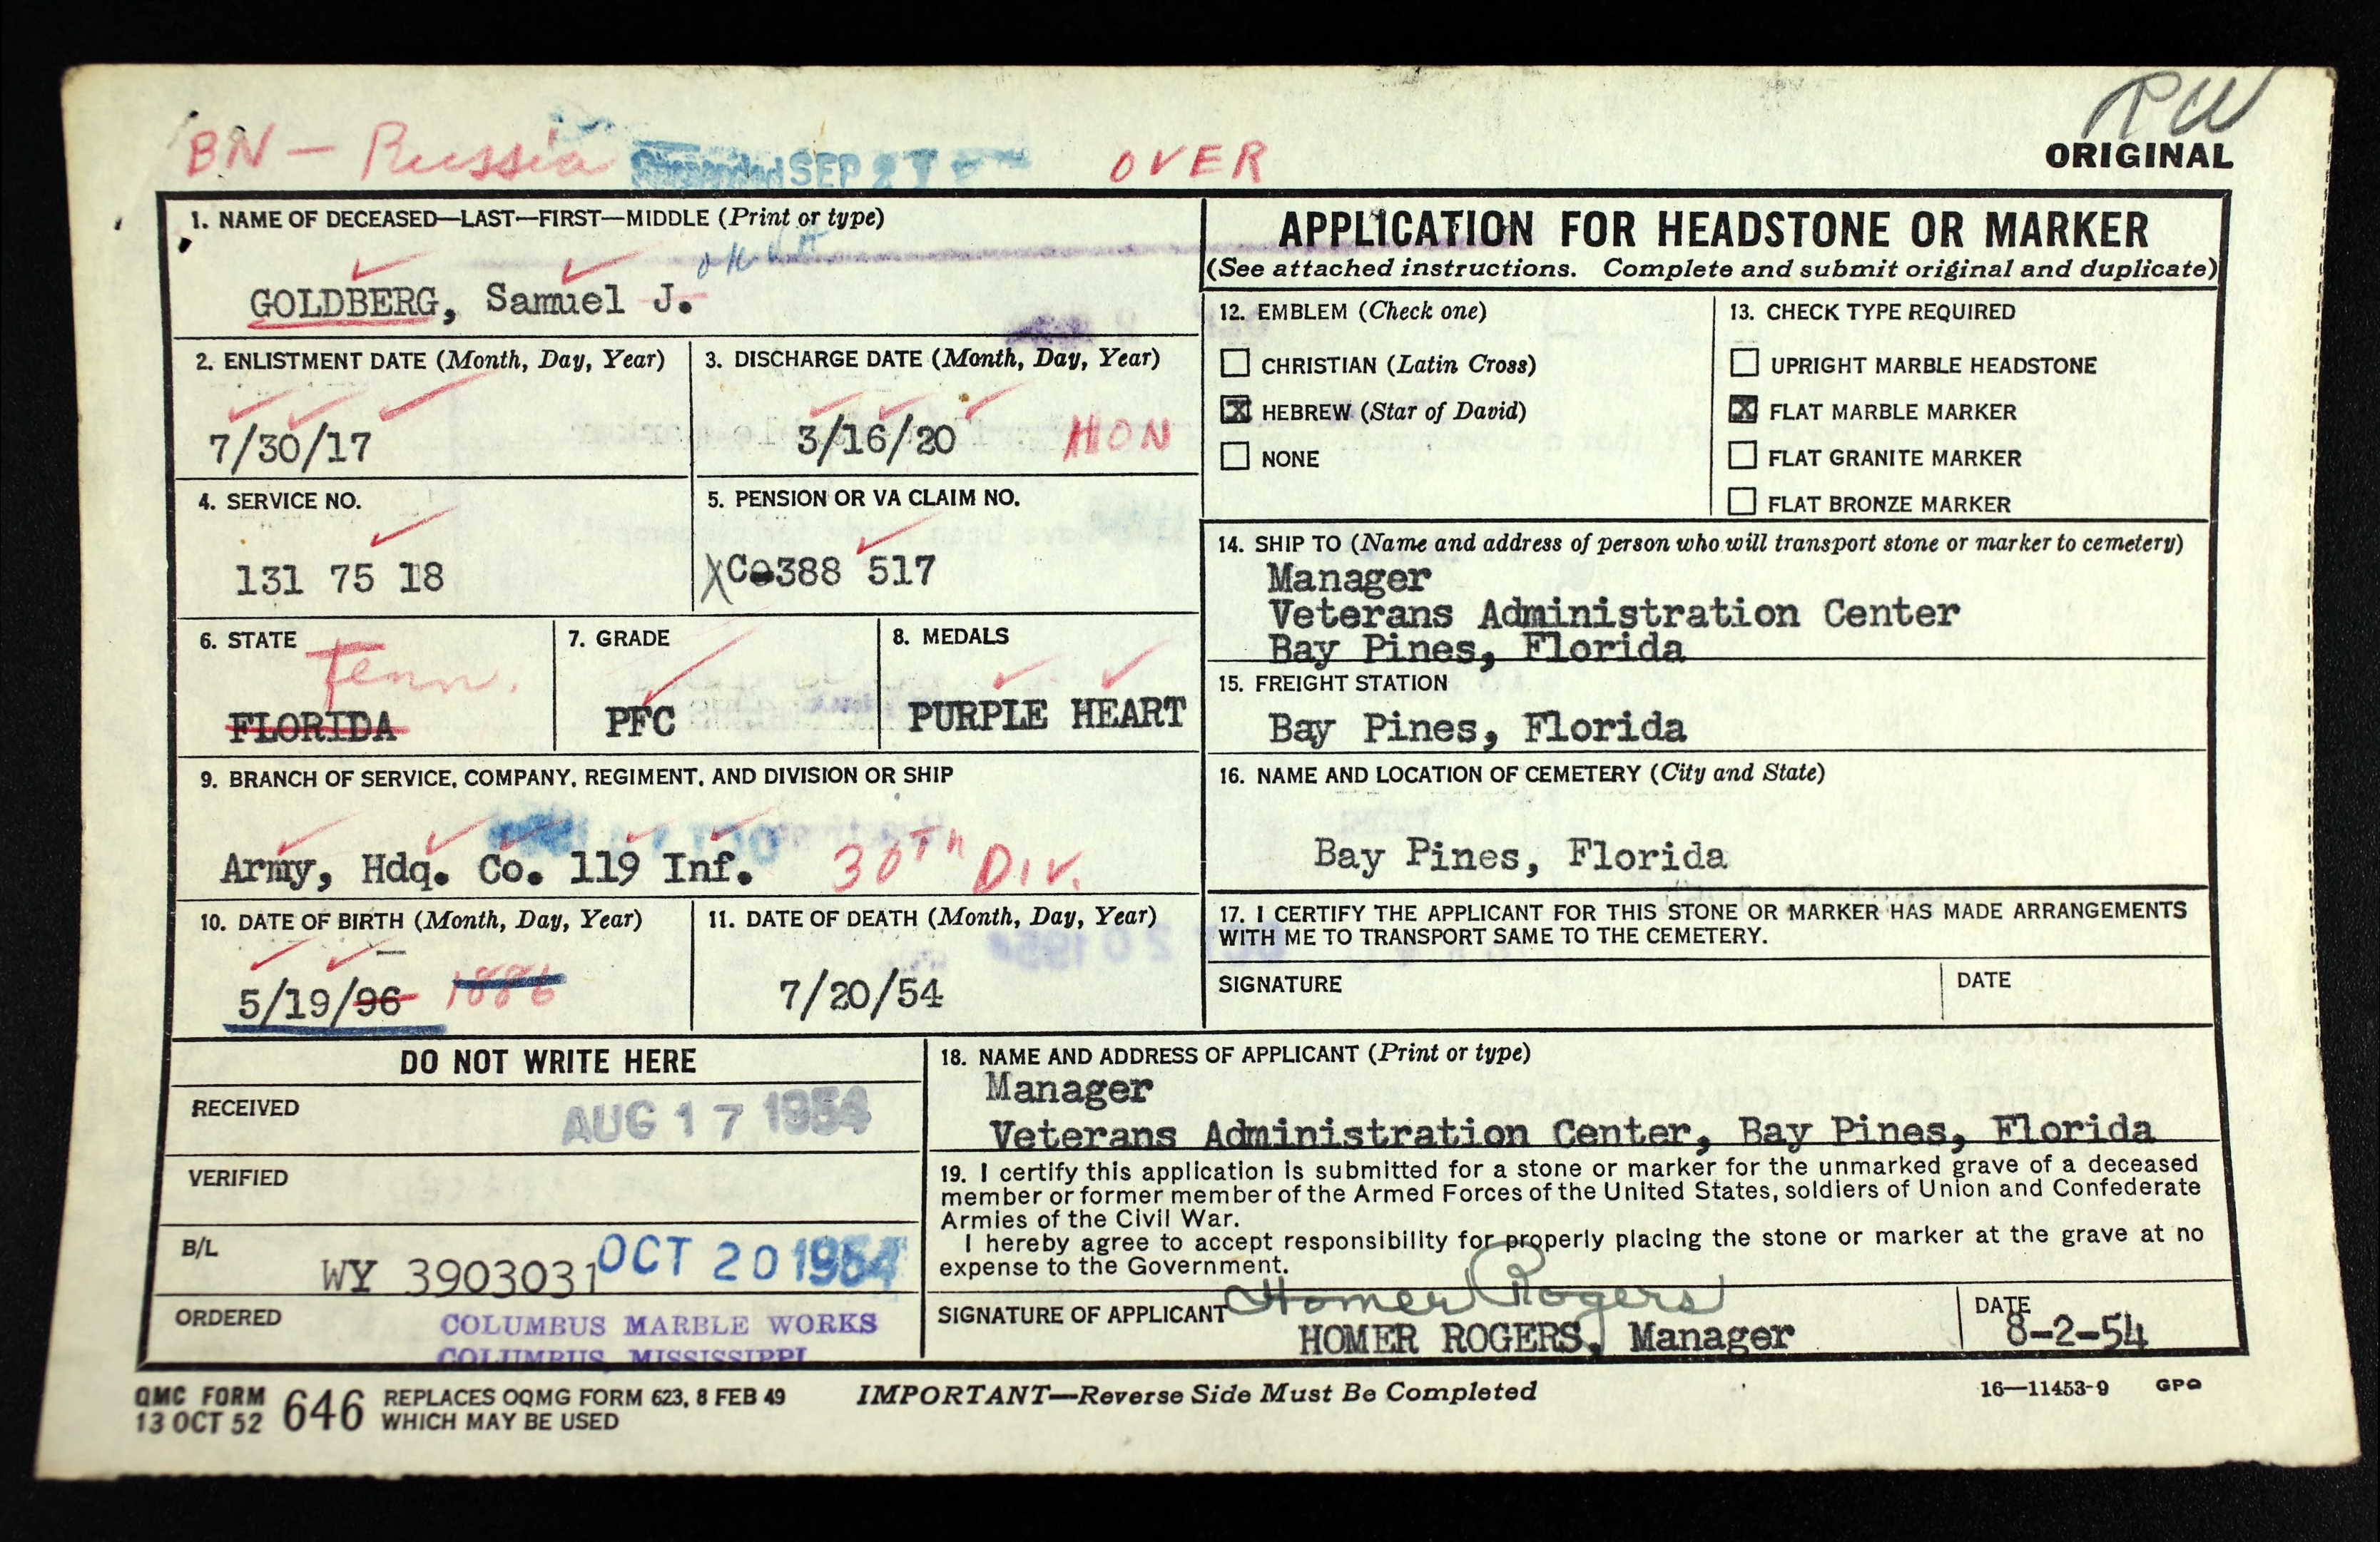 RW
ORIGINAL
BN - Russia Suspended SEP 27 OVER
1. NAME OF DECEASED—LAST—FIRST—MIDDLE (Print or type)
GOLDBERG, Samuel J.
2. ENLISTMENT DATE (Month, Day, Year)
7/30/17
3. DISCHARGE DATE (Month, Day, Year)
3/16/20 HON
4. SERVICE NO.
131 75 18
5. PENSION OR VA CLAIM NO.
XC 388 517
6. STATE
Tenn.
FLORIDA
7. GRADE
PFC
8. MEDALS
PURPLE HEART
9. BRANCH OF SERVICE, COMPANY, REGIMENT, AND DIVISION OR SHIP
Army, Hdq. Co. 119 Inf. 30TH DIV.
10. DATE OF BIRTH (Month, Day, Year)
5/19/96 1886
11. DATE OF DEATH (Month, Day, Year)
7/20/54
APPLICATION FOR HEADSTONE OR MARKER
(See attached instructions. Complete and submit original and duplicate)
12. EMBLEM (Check one)
CHRISTIAN (Latin Cross)
X HEBREW (Star of David)
NONE
13. CHECK TYPE REQUIRED
UPRIGHT MARBLE HEADSTONE
X FLAT MARBLE MARKER
FLAT GRANITE MARKER
FLAT BRONZE MARKER
14. SHIP TO (Name and address of person who will transport stone or marker to cemetery)
Manager
Veterans Administration Center
Bay Pines, Florida
15. FREIGHT STATION
Bay Pines, Florida
16. NAME AND LOCATION OF CEMETERY (City and State)
Bay Pines, Florida
17. I CERTIFY THE APPLICANT FOR THIS STONE OR MARKER HAS MADE ARRANGEMENTS
WITH ME TO TRANSPORT SAME TO THE CEMETERY.
SIGNATURE
DATE
DO NOT WRITE HERE
RECEIVED AUG 17 1954
VERIFIED
B/L WY 3903031 OCT 20 1954
ORDERED COLUMBUS MARBLE WORKS
COLUMBUS, MISSISSIPPI
18. NAME AND ADDRESS OF APPLICANT (Print or type)
Manager
Veterans Administration Center, Bay Pines, Florida
19. I certify this application is submitted for a stone or marker for the unmarked grave of a deceased
member or former member of the Armed Forces of the United States, soldiers of Union and Confederate
Armies of the Civil War.
I hereby agree to accept responsibility for properly placing the stone or marker at the grave at no
expense to the Government.
SIGNATURE OF APPLICANT Homer Rogers
HOMER ROGERS, Manager
DATE
8-2-54
QMC FORM
13 OCT 52
646
REPLACES OQMG FORM 623, 8 FEB 49
WHICH MAY BE USED
IMPORTANT—Reverse Side Must Be Completed
16—11453-9 GPO